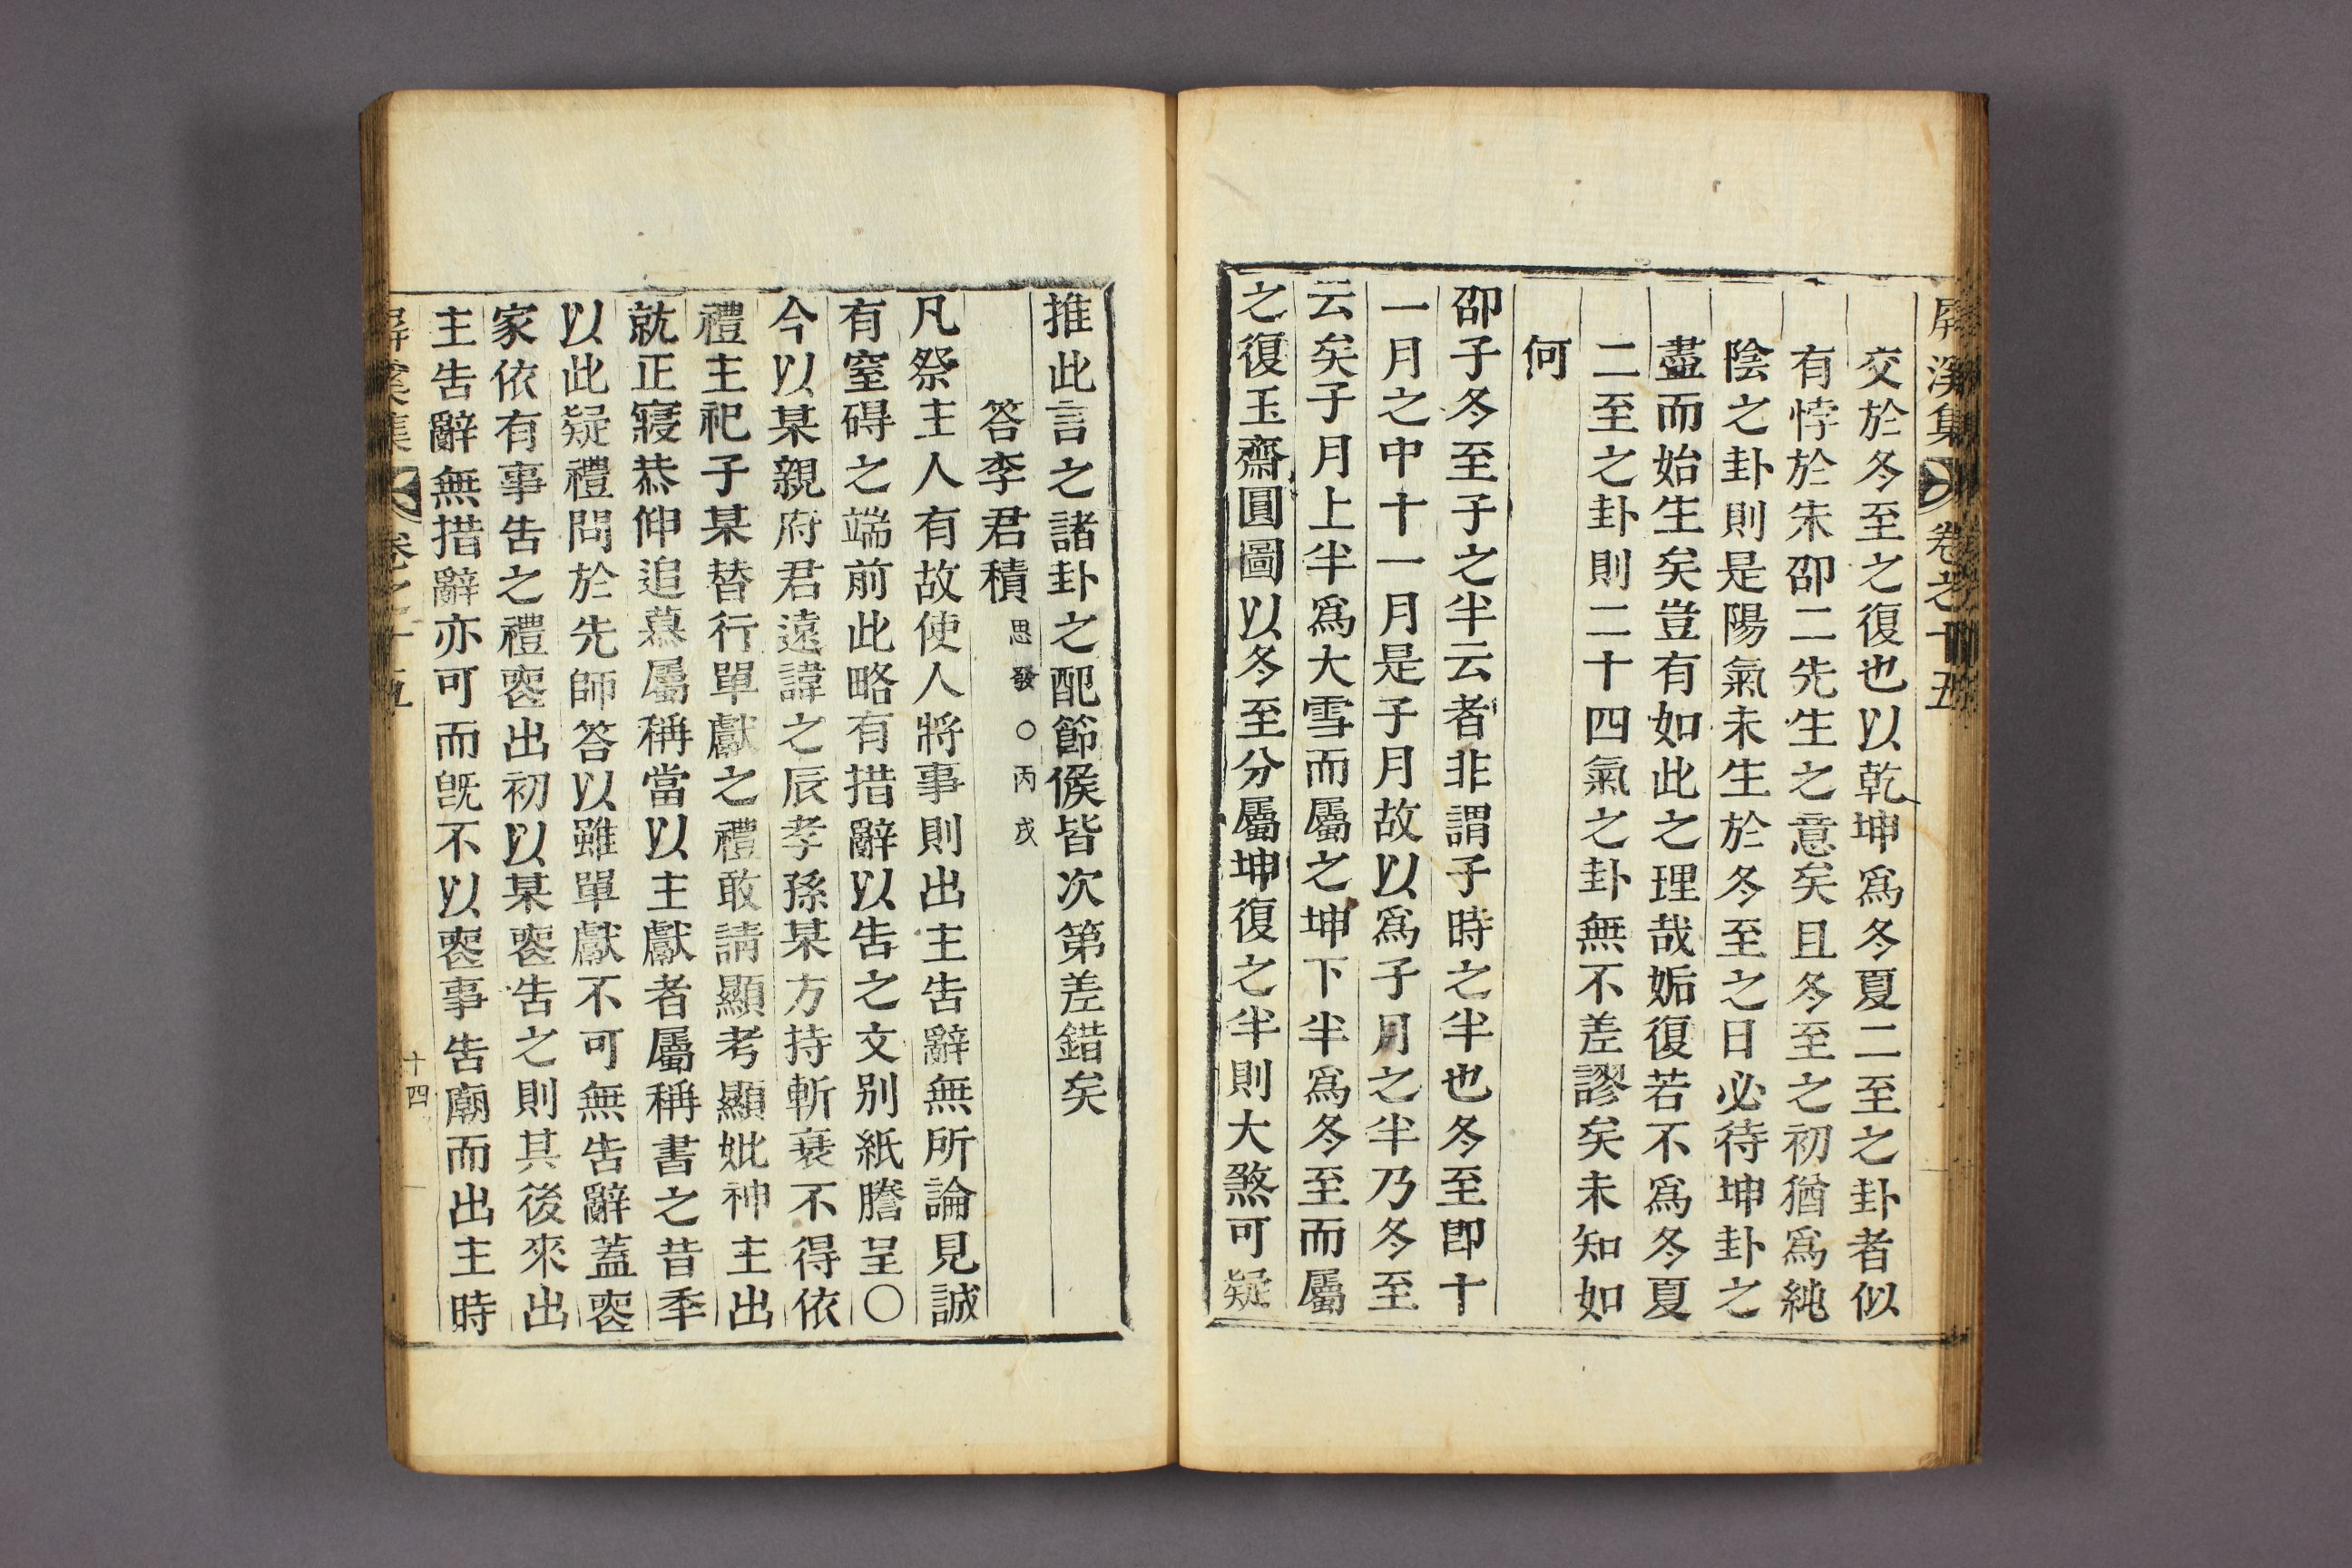 屛溪集 卷之十五
交於冬至之復也以乾坤爲冬夏二至之卦者似
有悖於朱卲二先生之意矣且冬至之初猶爲純
陰之卦則是陽氣未生於冬至之日必待坤卦之
盡而始生矣豈有如此之理哉姤復若不爲冬夏
二至之卦則二十四氣之卦無不差謬矣未知如
何
卲子冬至子之半云者非謂子時之半也冬至卽十
一月之中十一月是子月故以爲子月之半乃冬至
云矣子月上半爲大雪而屬之坤下半爲冬至而屬
之復玉齋圓圖以冬至分屬坤復之半則大煞可疑
推此言之諸卦之配節候皆次第差錯矣
答李君積 思發○丙戌
凡祭主人有故使人將事則出主告辭無所論見誠
有窒碍之端前此略有措辭以告之文别紙謄呈○
今以某親府君遠諱之辰孝孫某方持斬衰不得依
禮主祀子某替行單獻之禮敢請顯考顯妣神主出
就正寢恭伸追慕屬稱當以主獻者屬稱書之昔季
以此疑禮問於先師答以雖單獻不可無告辭蓋喪
家依有事告之禮喪出初以某喪告之則其後來出
主告辭無措辭亦可而旣不以喪事告廟而出主時
屛溪集 卷之十五 十四